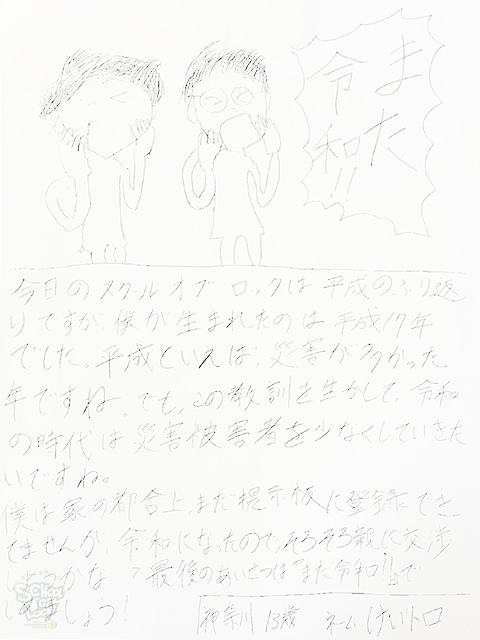 また
令和!!
今日のスクールオブロックは平成のふり返
りですが、僕が生まれたのは平成17年
でした。平成といえば、災害が多かった
年ですね。でも、この教訓を生かして、令和
の時代は災害被害者を少なくしていきた
いですね。
僕は家の都合上、まだ提示板に登録でき
てませんが、令和になったので、そろそろ親に交渉
かな？最後のあいさつは『また令和!!』で
しめましょう！
神奈川 13歳 ネーム：けいトロ